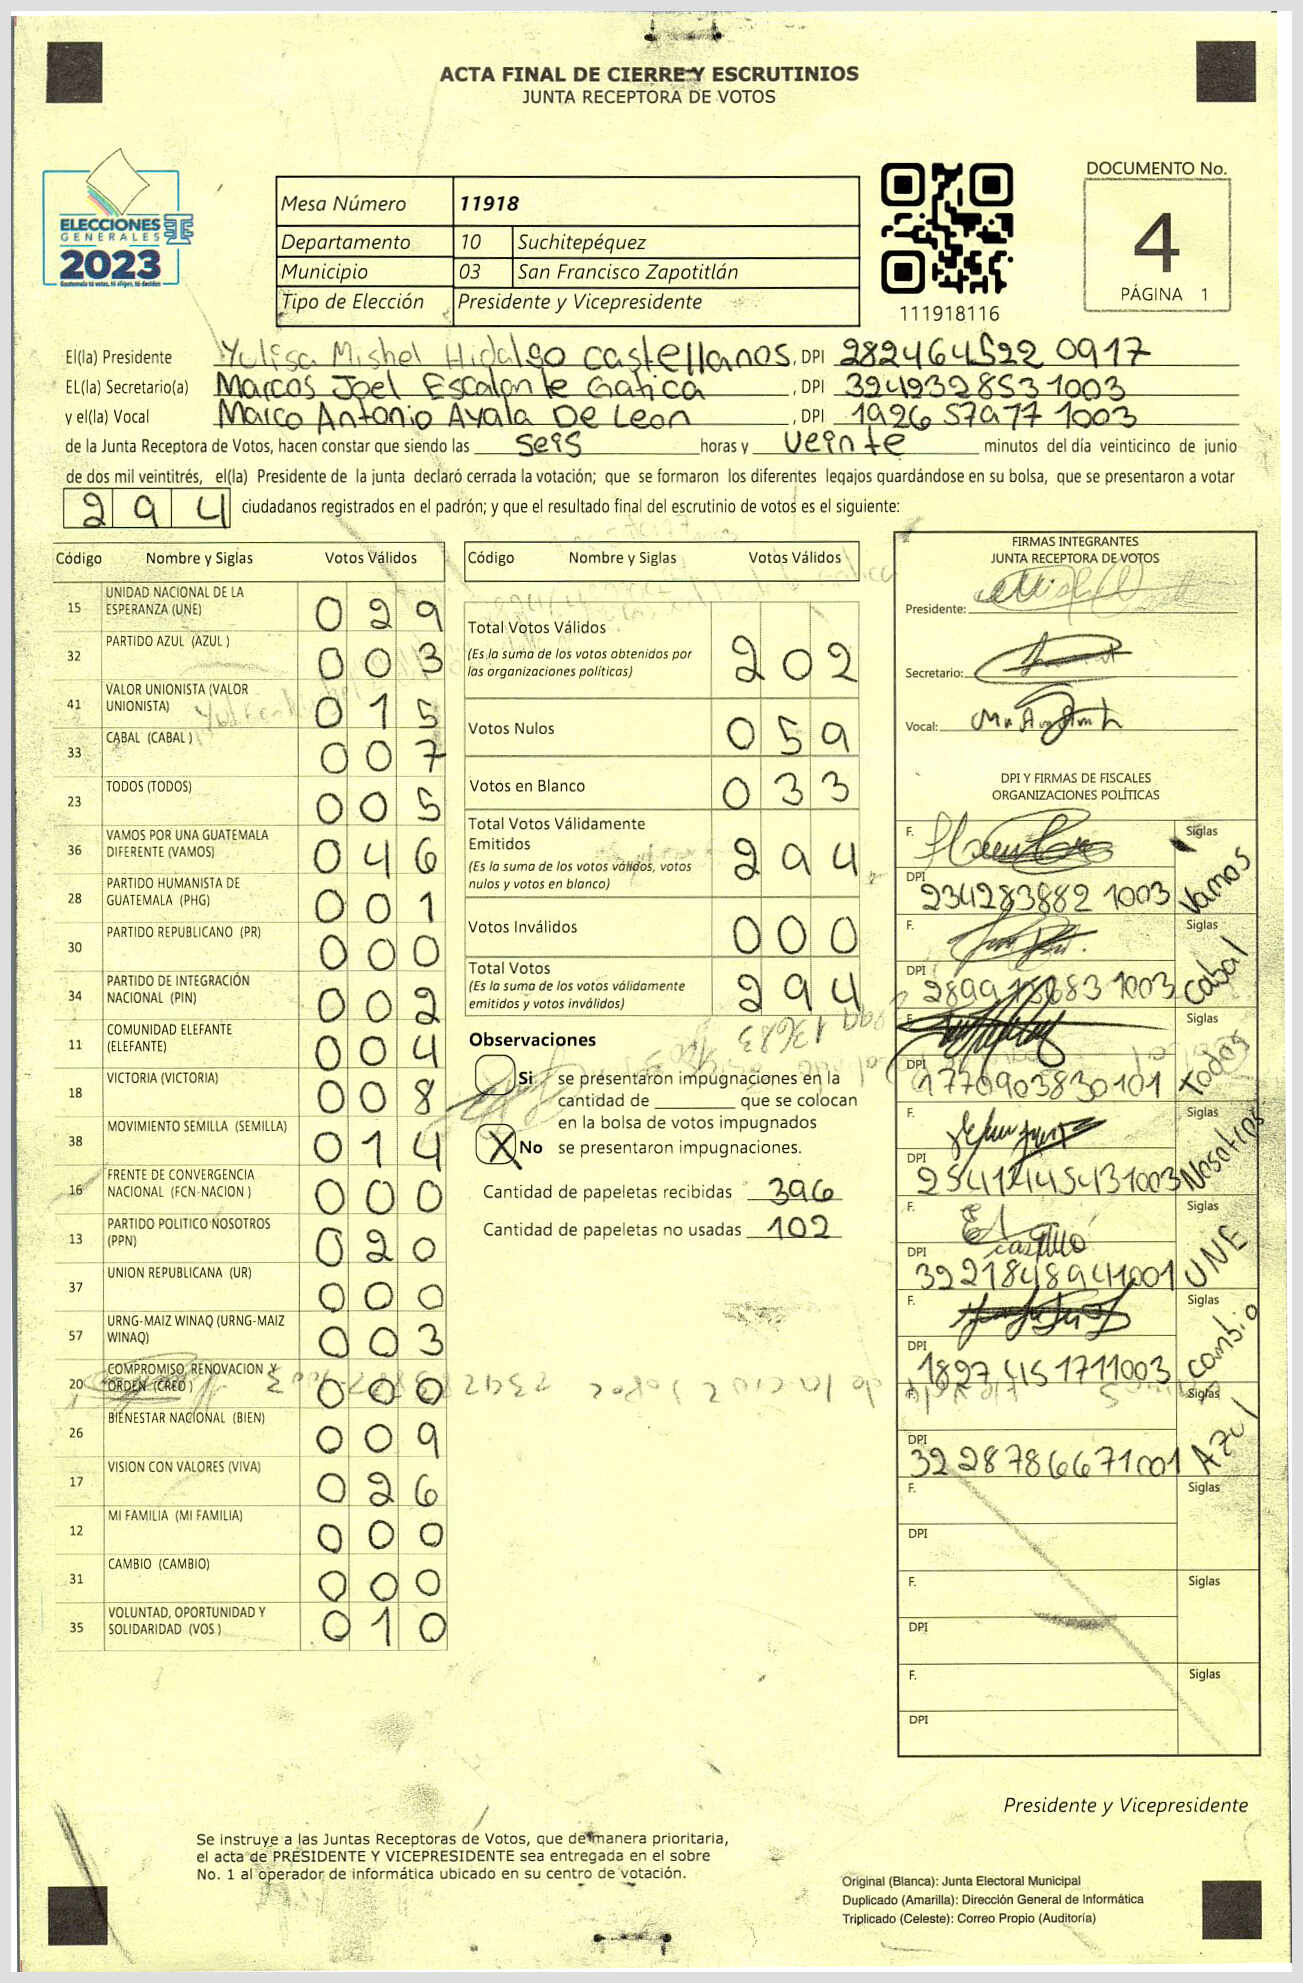 ACTA FINAL DE CIERRE Y ESCRUTINIOS
JUNTA RECEPTORA DE VOTOS
ELECCIONES
GENERALES
2023
Guatemala tú votas, tú eliges, tú decides
Mesa Número 11918
Departamento 10 Suchitepéquez
Municipio 03 San Francisco Zapotitlán
Tipo de Elección Presidente y Vicepresidente
111918116
DOCUMENTO No.
4
PÁGINA 1
El(la) Presidente Yulisa Mishel Hidalgo Castellanos, DPI 282464522 0917
EL(la) Secretario(a) Marcos Joel Escalante Gatica, DPI 324932853 1003
y el(la) Vocal Marco Antonio Ayala De Leon, DPI 1926 57977 1003
de la Junta Receptora de Votos, hacen constar que siendo las seis horas y veinte minutos del día veinticinco de junio
de dos mil veintitrés, el(la) Presidente de la junta declaró cerrada la votación; que se formaron los diferentes legajos guardándose en su bolsa, que se presentaron a votar
294 ciudadanos registrados en el padrón; y que el resultado final del escrutinio de votos es el siguiente:
Código Nombre y Siglas Votos Válidos
15 UNIDAD NACIONAL DE LA ESPERANZA (UNE) 029
32 PARTIDO AZUL (AZUL ) 003
41 VALOR UNIONISTA (VALOR UNIONISTA) 015
33 CABAL (CABAL ) 007
23 TODOS (TODOS) 005
36 VAMOS POR UNA GUATEMALA DIFERENTE (VAMOS) 046
28 PARTIDO HUMANISTA DE GUATEMALA (PHG) 001
30 PARTIDO REPUBLICANO (PR) 000
34 PARTIDO DE INTEGRACIÓN NACIONAL (PIN) 002
11 COMUNIDAD ELEFANTE (ELEFANTE) 004
18 VICTORIA (VICTORIA) 008
38 MOVIMIENTO SEMILLA (SEMILLA) 014
16 FRENTE DE CONVERGENCIA NACIONAL (FCN-NACION ) 000
13 PARTIDO POLITICO NOSOTROS (PPN) 020
37 UNION REPUBLICANA (UR) 000
57 URNG-MAIZ WINAQ (URNG-MAIZ WINAQ) 003
20 COMPROMISO, RENOVACION Y ORDEN (CREO ) 000
26 BIENESTAR NACIONAL (BIEN) 009
17 VISION CON VALORES (VIVA) 026
12 MI FAMILIA (MI FAMILIA) 000
31 CAMBIO (CAMBIO) 000
35 VOLUNTAD, OPORTUNIDAD Y SOLIDARIDAD (VOS ) 010
Código Nombre y Siglas Votos Válidos
Total Votos Válidos 202
(Es la suma de los votos obtenidos por
las organizaciones políticas)
Votos Nulos 059
Votos en Blanco 033
Total Votos Válidamente
Emitidos 294
(Es la suma de los votos válidos, votos
nulos y votos en blanco)
Votos Inválidos 000
Total Votos 294
(Es la suma de los votos válidamente
emitidos y votos inválidos)
Observaciones
Si se presentaron impugnaciones en la
cantidad de ________ que se colocan
en la bolsa de votos impugnados
X No se presentaron impugnaciones.
Cantidad de papeletas recibidas 396
Cantidad de papeletas no usadas 102
FIRMAS INTEGRANTES
JUNTA RECEPTORA DE VOTOS
Presidente:
Secretario:
Vocal:
DPI Y FIRMAS DE FISCALES
ORGANIZACIONES POLÍTICAS
F. Siglas Vamos
DPI 234283882 1003
F. Siglas Cabal
DPI 1003
F. Siglas Todos
DPI 1770903830101
F. Siglas Nosotros
DPI 1003
F. Castillo Siglas UNE
DPI 3221848941001
F. Siglas Cambio
DPI 1897415171 1003
F. Siglas Azul
DPI 3228786671001
F. Siglas
DPI
F. Siglas
DPI
F. Siglas
DPI
Presidente y Vicepresidente
Se instruye a las Juntas Receptoras de Votos, que de manera prioritaria,
el acta de PRESIDENTE Y VICEPRESIDENTE sea entregada en el sobre
No. 1 al operador de informática ubicado en su centro de votación.
Original (Blanca): Junta Electoral Municipal
Duplicado (Amarilla): Dirección General de Informática
Triplicado (Celeste): Correo Propio (Auditoría)